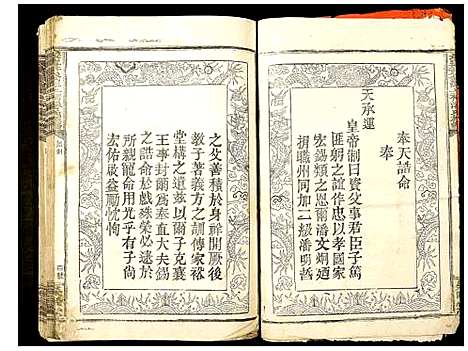 奉天誥命
奉
天承運
皇帝制曰資父事君臣子篤
匪躬之誼作忠以孝國家
宏錫類之恩爾潘文炯迺
捐職州同加二級潘明哲
之父善積於身祥開厥後
教子著義方之訓傳家裕
堂構之遺茲以爾子克襄
王事封爾為奉直大夫錫
之誥命於戲殊榮必逮於
所親寵命用光乎有子尚
宏佑啟益勵忱恂